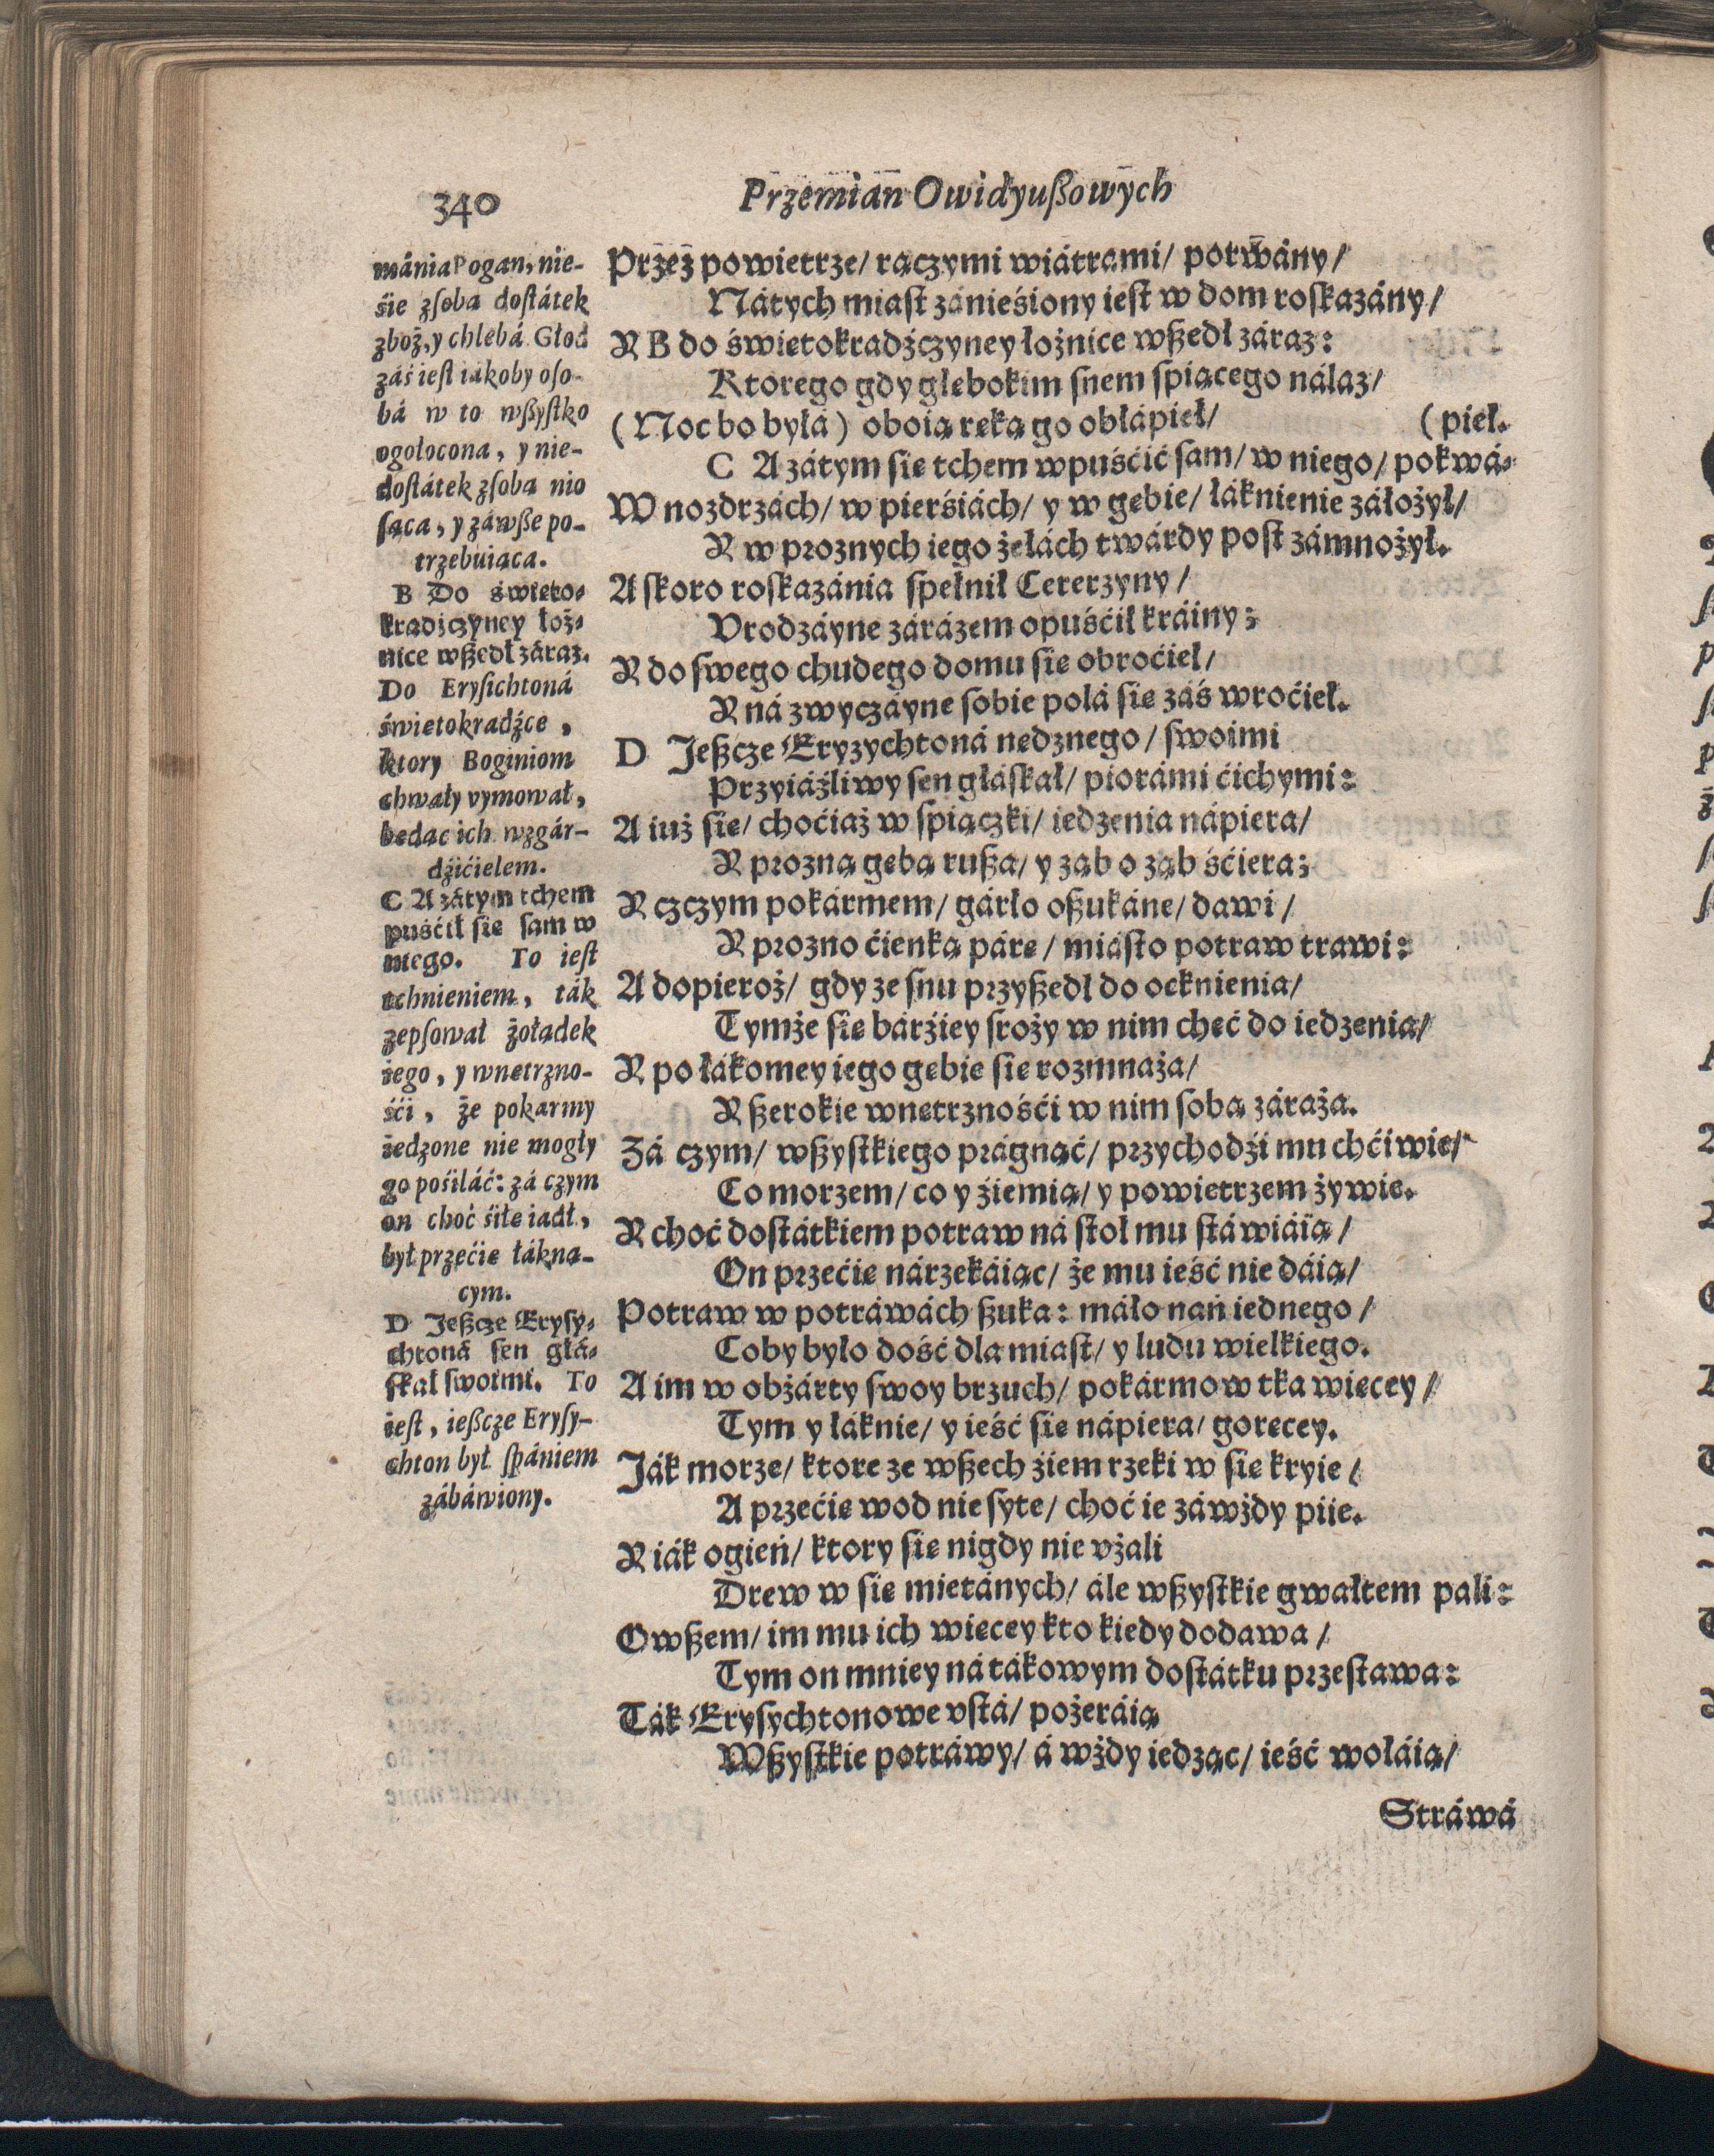 340
Przemian Owidyußowych
mánia Pogan, nie-
śie zſoba doſtátek
zboż, y chlebá Głod
záś ieſt iákoby oſo-
bá w to wßyſtko
ogołocona, y nie-
doſtátek zſoba nio
ſąca, y záwße po-
trzebuiąca.
B Do świeto-
kradżczyney łoż-
nice wßedł záraz.
Do Eryſichtoná
świetokradźce,
ktory Boginiom
chwały vymował,
bedąc ich wzgár-
dźićielem.
C A zátym tchem
puśćił ſie ſam w
niego. To ieſt
tchnieniem, ták
zepſował żołądek
iego, y wnetrzno-
śći, że pokarmy
iedzone nie mogły
go pośiláć: zá czym
on choć śiłe iadł,
był przećie łákną-
cym.
D Jeßcze Eryſy-
chtoná ſen głá-
ſkał ſwoimi. To
ieſt, ießcze Eryſy-
chton był ſpániem
zábáwiony.
Przez powietrze/ rączymi wiátrami/ porwány/
Nátych miaſt zánieśiony ieſt w dom roſkazány/
Y B do świetokradżczyney łożnice wßedł záraz:
Ktorego gdy głebokim ſnem ſpiącego nálaz/
(Noc bo byłá) oboią reką go obłápieł/ (pieł.
C A zátym ſie tchem wpuśćić ſam/ w niego/ pokwá-
W nozdrzách/ w pierśiách/ y w gebie/ łáknienie záłożył/
Y w proznych iego żełách twárdy poſt zámnożył.
A ſkoro roſkazánia ſpełnił Cererzyny/
Vrodzáyne zárázem opuśćił kráiny;
Y do ſwego chudego domu ſie obroćieł/
Y ná zwyczáyne ſobie polá ſie záś wroćieł.
D Jeßcze Eryzychtoná nedznego/ ſwoimi
Przyiáźliwy ſen głáſkał/ piorámi ćichymi:
A iuż ſie/ choćiaż w ſpiączki/ iedzenia nápiera/
Y prozną gebą rußa/ y ząb o ząb śćiera;
Y czczym pokármem/ gárło oßukáne/ dawi/
Y prozno ćienką páre/ miásto potraw trawi:
A dopieroż/ gdy ze ſnu przyßedł do ocknienia/
Tymże ſie bárźiey ſroży w nim cheć do iedzenia/
Y po łákomey iego gebie ſie rozmnaża/
Y ßerokie wnetrznośći w nim ſobą záraża.
Zá czym/ wßyſtkiego prágnąć/ przychodźi mu chćiwie/
Co morzem/ co y źiemią/ y powietrzem żywie.
Y choć doſtátkiem potraw ná ſtoł mu ſtáwiáią/
On przećie nárzekáiąc/ że mu ieść nie dáią/
Potraw w potráwách ßuka: máło nań iednego/
Coby było dość dla miaſt/ y ludu wielkiego.
A im w obżárty ſwoy brzuch/ pokármow tka wiecey/
Tym y łáknie/ y ieść ſie nápiera/ gorecey.
Ják morze/ ktore ze wßech źiem rzeki w ſie kryie/
A przećie wod nie ſyte/ choć ie záwżdy piie.
Y iák ogień/ ktory ſie nigdy nie vżali
Drew w ſie mietánych/ ále wßyſtkie gwałtem pali:
Owßem/ im mu ich wiecey kto kiedy dodawa/
Tym on mniey ná tákowym doſtátku przeſtawa:
Ták Eryſychtonowe vſtá/ pożeráią
Wßyſtkie potráwy/ á wżdy iedząc/ ieść wołáią/
Stráwá